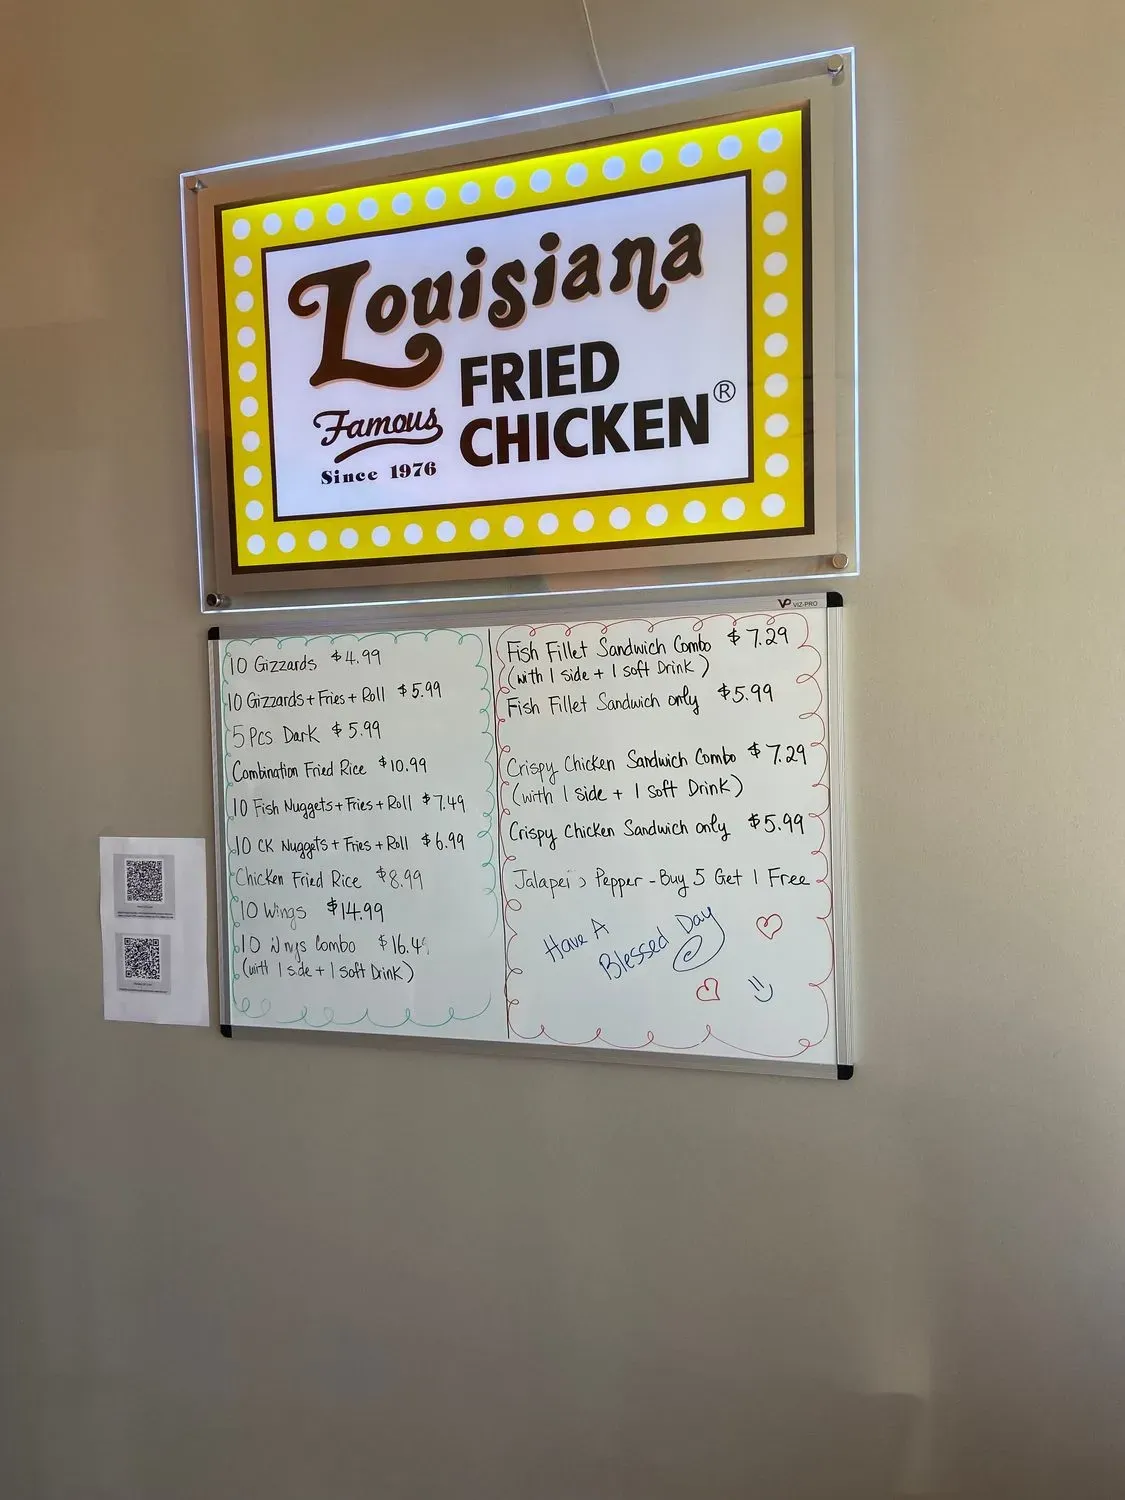 Louisiana
FRIED
CHICKEN®
Famous
Since 1976
VP VIZ-PRO
10 Gizzards $4.99
10 Gizzards + Fries + Roll $5.99
5 Pcs Dark $5.99
Combination Fried Rice $10.99
10 Fish Nuggets + Fries + Roll $7.49
10 CK Nuggets + Fries + Roll $6.99
Chicken Fried Rice $8.99
10 Wings $14.99
10 Wings Combo $16.49
(with 1 side + 1 Soft Drink)
Fish Fillet Sandwich Combo $7.29
(with 1 side + 1 soft Drink)
Fish Fillet Sandwich only $5.99
Crispy Chicken Sandwich Combo $7.29
(with 1 side + 1 Soft Drink)
Crispy Chicken Sandwich only $5.99
Jalapeño Pepper - Buy 5 Get 1 Free
Have A
Blessed Day